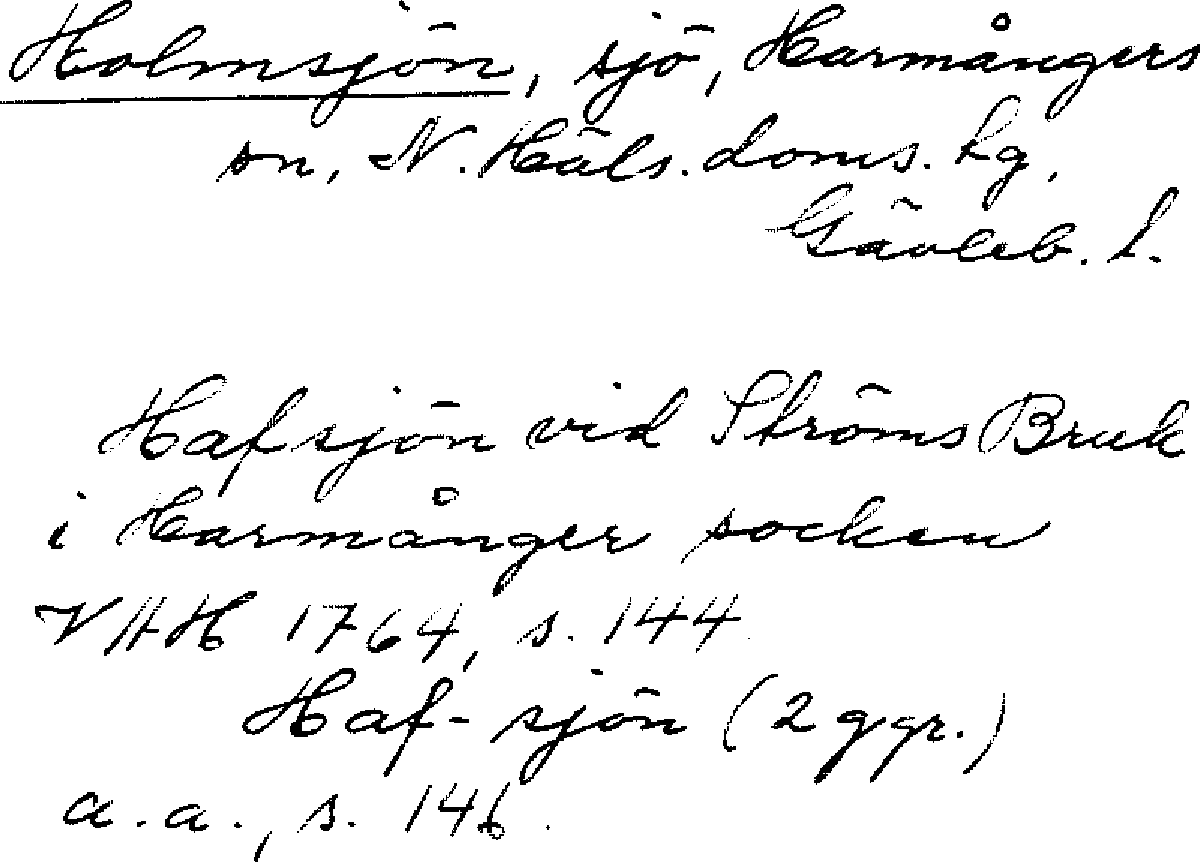 Holmsjön, sjö, Harmångers
sn, N. Häls. doms. lg,
Gävleb. l.
Hafsjön vid Ströms Bruk
i Harmånger socken
VAH 1764, s. 144
Haf-sjön (2 ggr.)
a.a., s. 146.